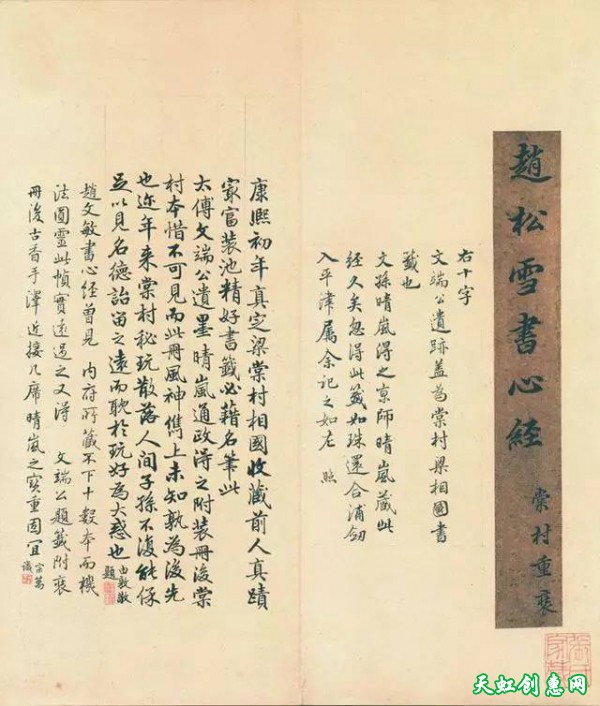 趙松雪書心經
棠村重裝
右十字
文端公遺跡蓋為棠村梁相國書
籤也
文孫晴嵐得之京師晴嵐藏此
經久矣忽得此籤如珠還合浦劒
入平津属余記之如左 照
康熙初年真定梁棠村相國收藏前人真蹟
家富裝池精好書籤必藉名筆此
太傅文端公遺墨晴嵐通政得之附裝冊後棠
村本惜不可見而此冊風神雋上未知孰為後先
也近年来棠村秘玩散落人间子孫不復能保
足以見名德詒留之遠而耽於玩好為大惑也 由敦敬題
趙文敏書心經曾見 内府所藏不下十數本而機
法圓靈此幀實遠過之又得 文端公題籤附裝
冊後古香手澤近接几席晴嵐之寶重固宜 宗萬識
天虹创惠网